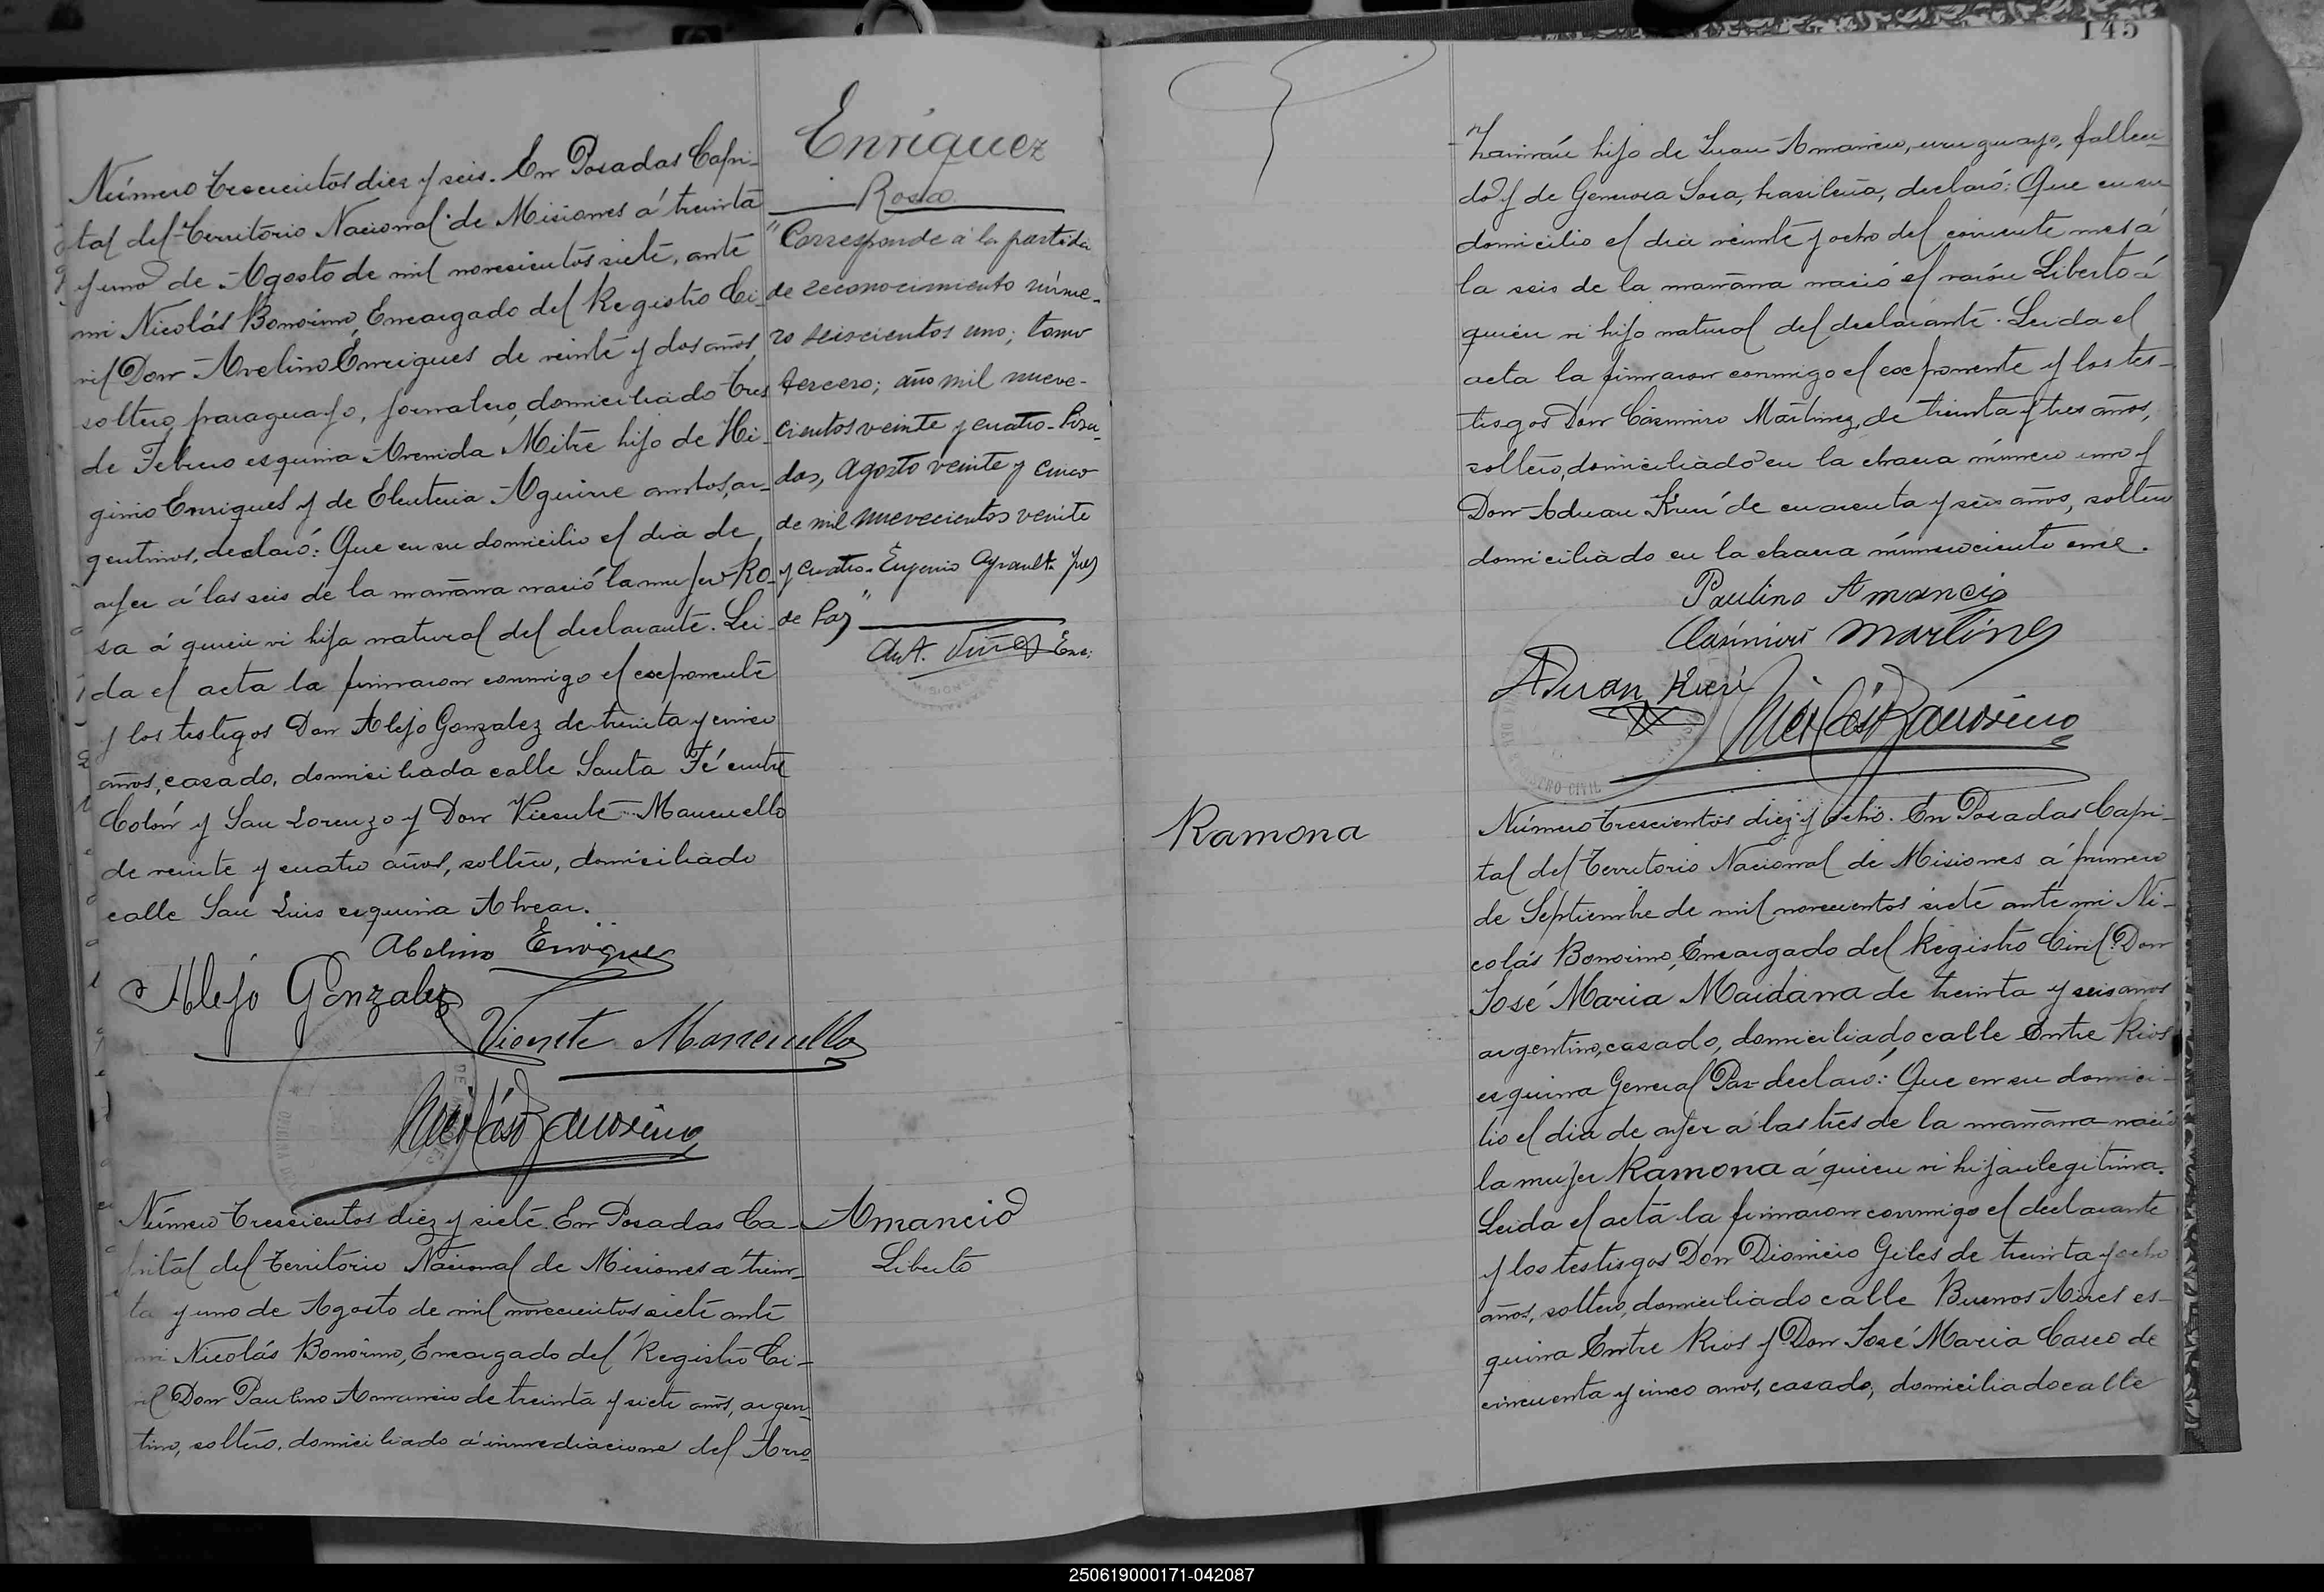 Número trescientos diez y seis. En Posadas Capi-
tal del Territorio Nacional de Misiones á treinta
y uno de Agosto de mil novecientos siete, ante
mi Nicolás Bonorino, Encargado del Registro Ci-
vil Don Avelino Enriques de veinte y dos años
soltero, paraguayo, jornalero, domiciliado Tres
de Febrero esquina Avenida Mitre hijo de Hi-
ginio Enriques y de Eleuteria Aguirre ambos, ar-
gentinos, declaró: Que en su domicilio el dia de
ayer á las seis de la mañana nació la mujer Ro-
sa á quien vi hija natural del declarante. Lei-
da el acta la firmaron conmigo el exponente
y los testigos Don Alejo Gonzalez de treinta y cinco
años, casado, domiciliada calle Santa Fé entre
Colón y San Lorenzo y Don Vicente Mancuello
de veinte y cuatro años, soltero, domiciliado
calle San Luis esquina Alvear.
Abelino Enriques
Alejo Gonzalez
Vicente Mancuello
Nicolás Bonorino
Enriquez
Rosa
"Corresponde á la partida
de reconocimiento núme-
ro seiscientos uno; tomo
tercero; año mil nueve-
cientos veinte y cuatro- Posa-
das, Agosto veinte y cinco
de mil nuevecientos veinte
y cuatro- Eugenio Ayrault Juez
de Paz"
Ant. Viñas Enc:
Número trescientos diez y siete. En Posadas Ca-
pital del Territorio Nacional de Misiones á trein-
ta y uno de Agosto de mil novecientos siete ante
mi Nicolás Bonorino, Encargado del Registro Ci-
vil Don Paulino Amancio de treinta y siete años, argen-
tino, soltero, domiciliado á inmediaciones del Arro-
Amancio
Liberto
145
hijo de Juan Amancio, uruguayo, falleci-
do y de Generosa Sosa, brasileña, declaró: Que en su
domicilio el dia veinte y ocho del corriente mes á
la seis de la mañana nació el varón Liberto á
quien vi hijo natural del declarante. Leida el
acta la firmaron conmigo el exponente y los tes-
tigos Don Casimiro Martinez, de treinta y tres años,
soltero, domiciliado en la chacra número uno y
Don Aduan Kuri de cuarenta y seis años, soltero
domiciliado en la chacra número ciento once.
Paulino Amancio
Casimiro Martines
Aduan Kuri
Nicolás Bonorino
REGISTRO CIVIL
Ramona
Número trescientos diez y ocho. En Posadas Capi-
tal del Territorio Nacional de Misiones á primero
de Septiembre de mil novecientos siete ante mi Ni-
colás Bonorino, Encargado del Registro Civil Don
José Maria Maidana de treinta y seis años
argentino, casado, domiciliado calle Entre Rios
esquina General Paz declaró: Que en su domici-
lio el dia de ayer á las tres de la mañana nació
la mujer Ramona á quien vi hija legitima.
Leida el acta la firmaron conmigo el declarante
y los testigos Don Dionicio Giles de treinta y ocho
años, soltero, domiciliado calle Buenos Aires es-
quina Entre Rios y Don José Maria Casco de
cincuenta y cinco años, casado, domiciliado calle
250619000171-042087